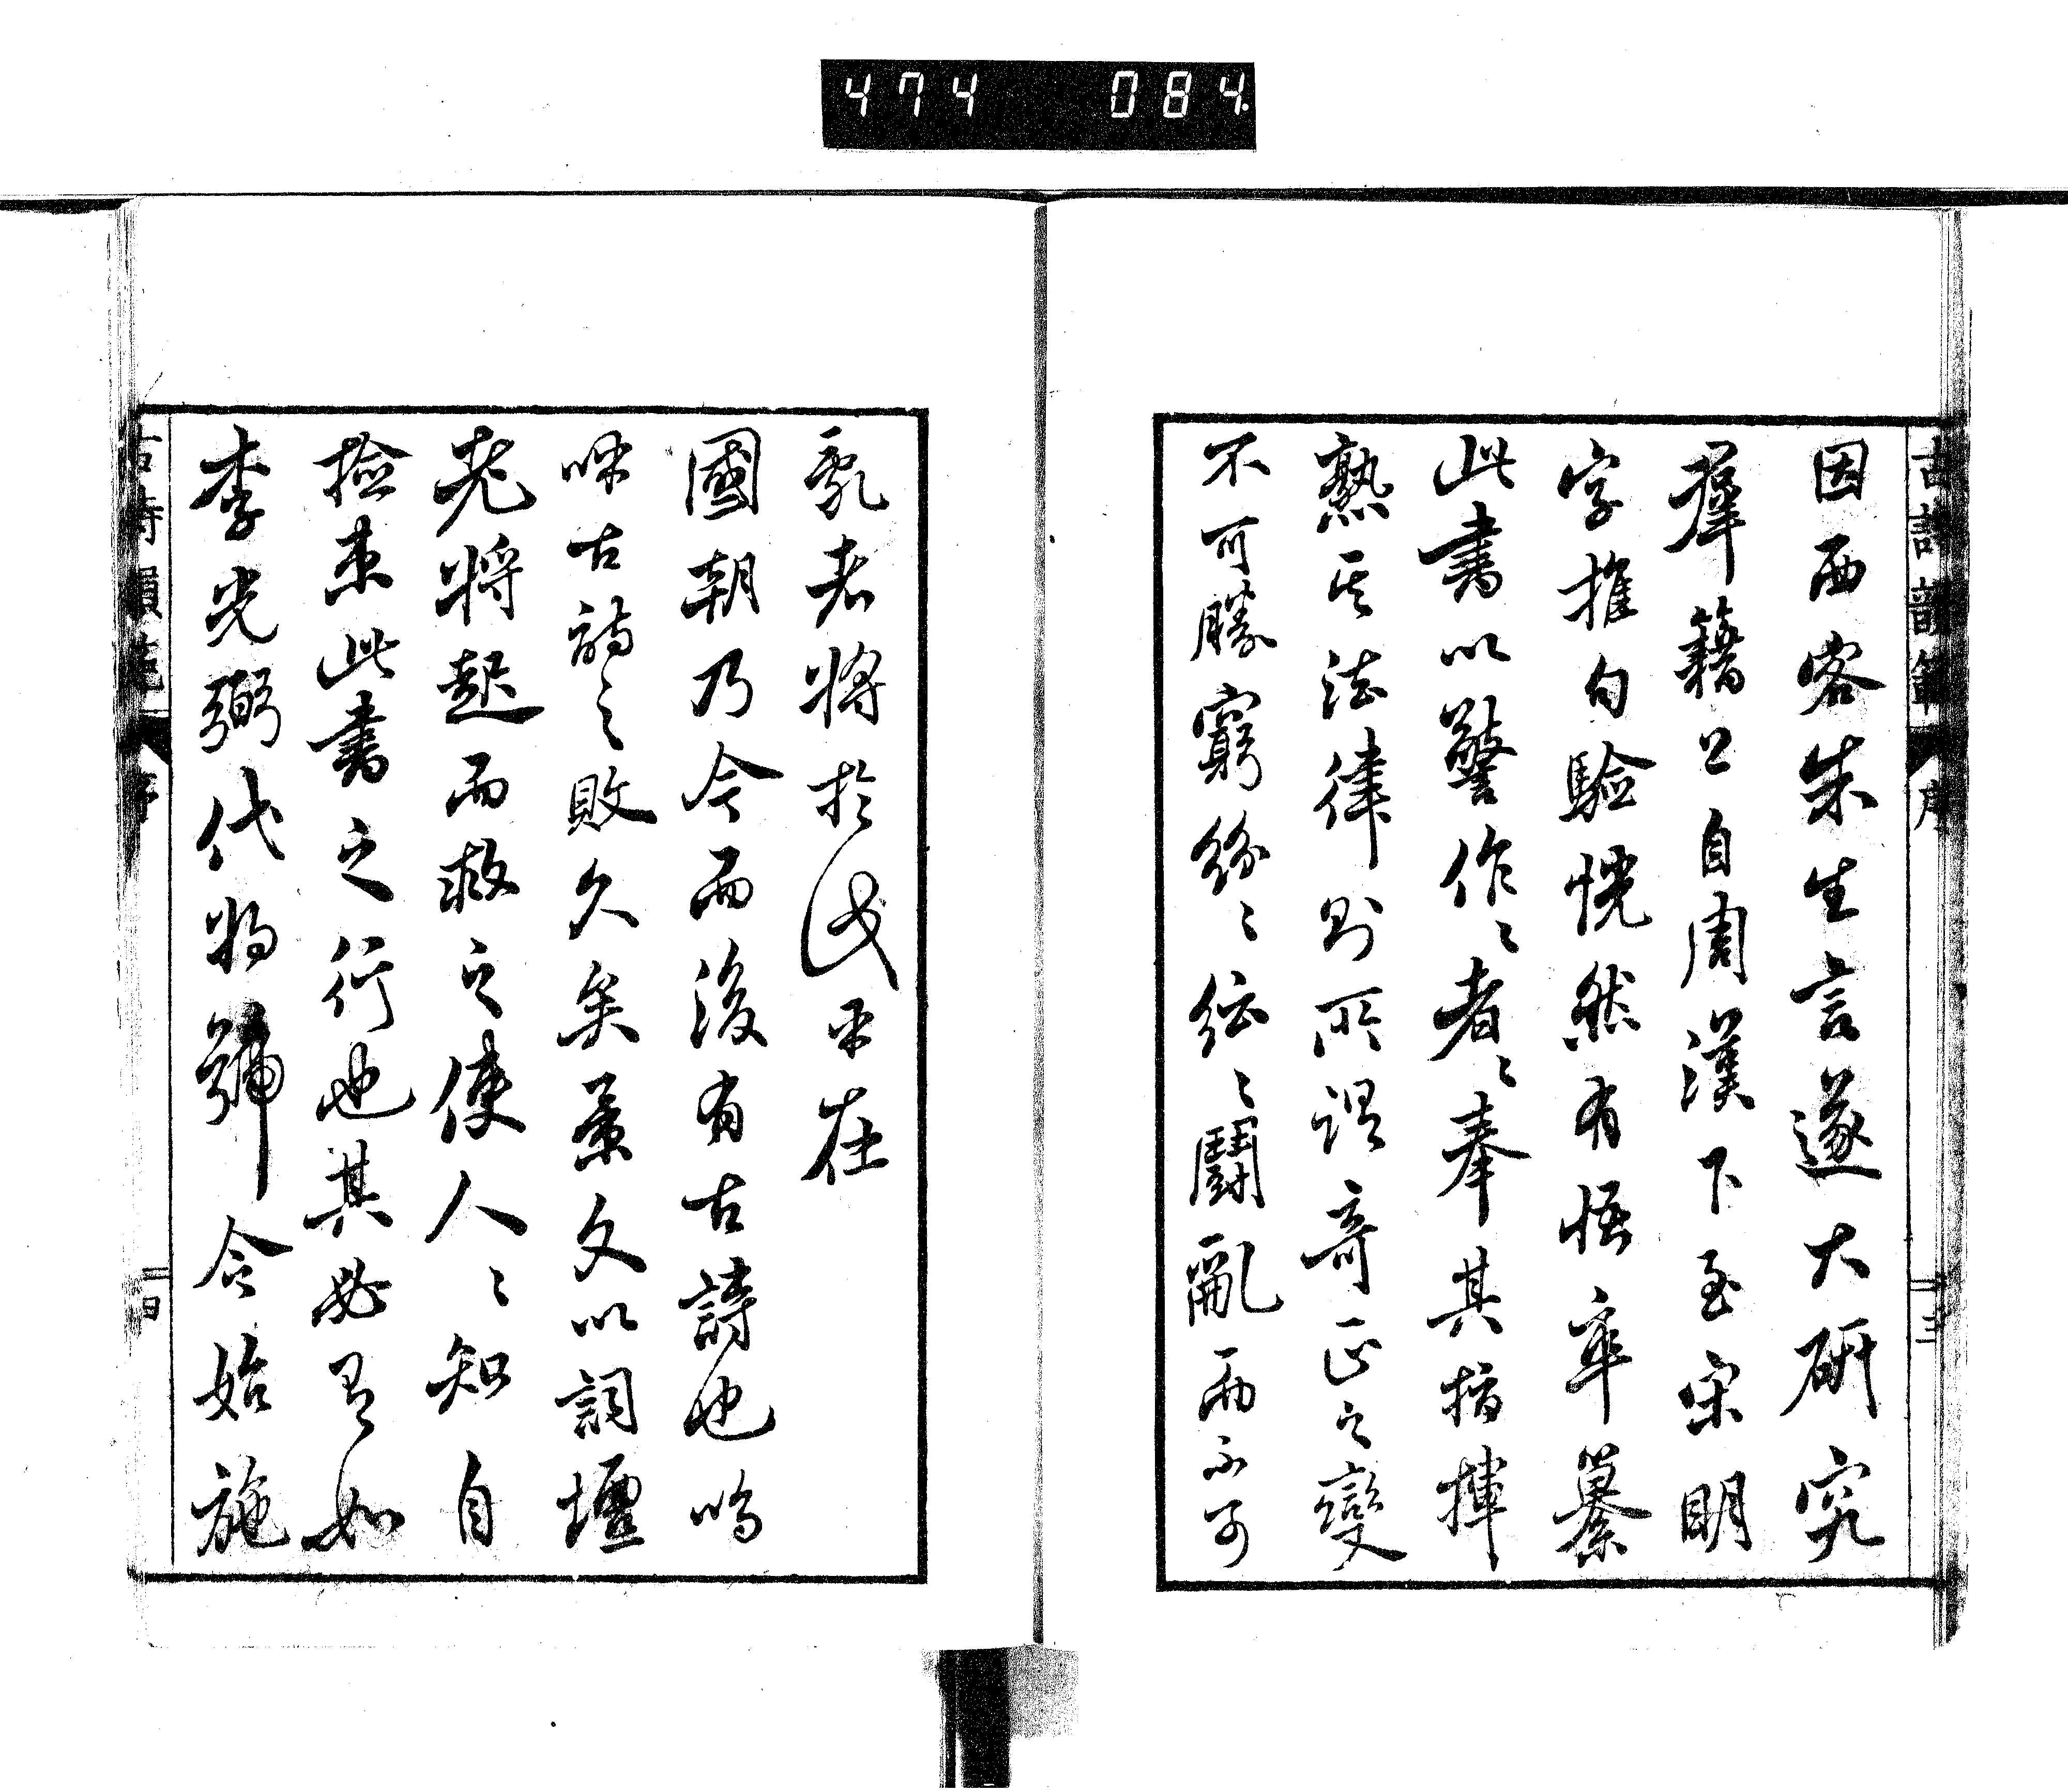 古詩韻範 序 三
因西客朱生言遂大研究
羣籍上自周漢下至宋明
字推句驗恍然有悟率纂
此書以警作〻者〻奉其指揮
熟其法律則所謂奇正之變
不可勝窮紛〻紜〻鬪亂而不可
亂者將於此乎在
國朝乃今而後有古詩也嗚
呼古詩之敗久矣景文以詞壇
老將起而救之使人〻知自
撿束此書之行也其必有如
李光弼代將號令始施
古詩韻範 序 四
474 084